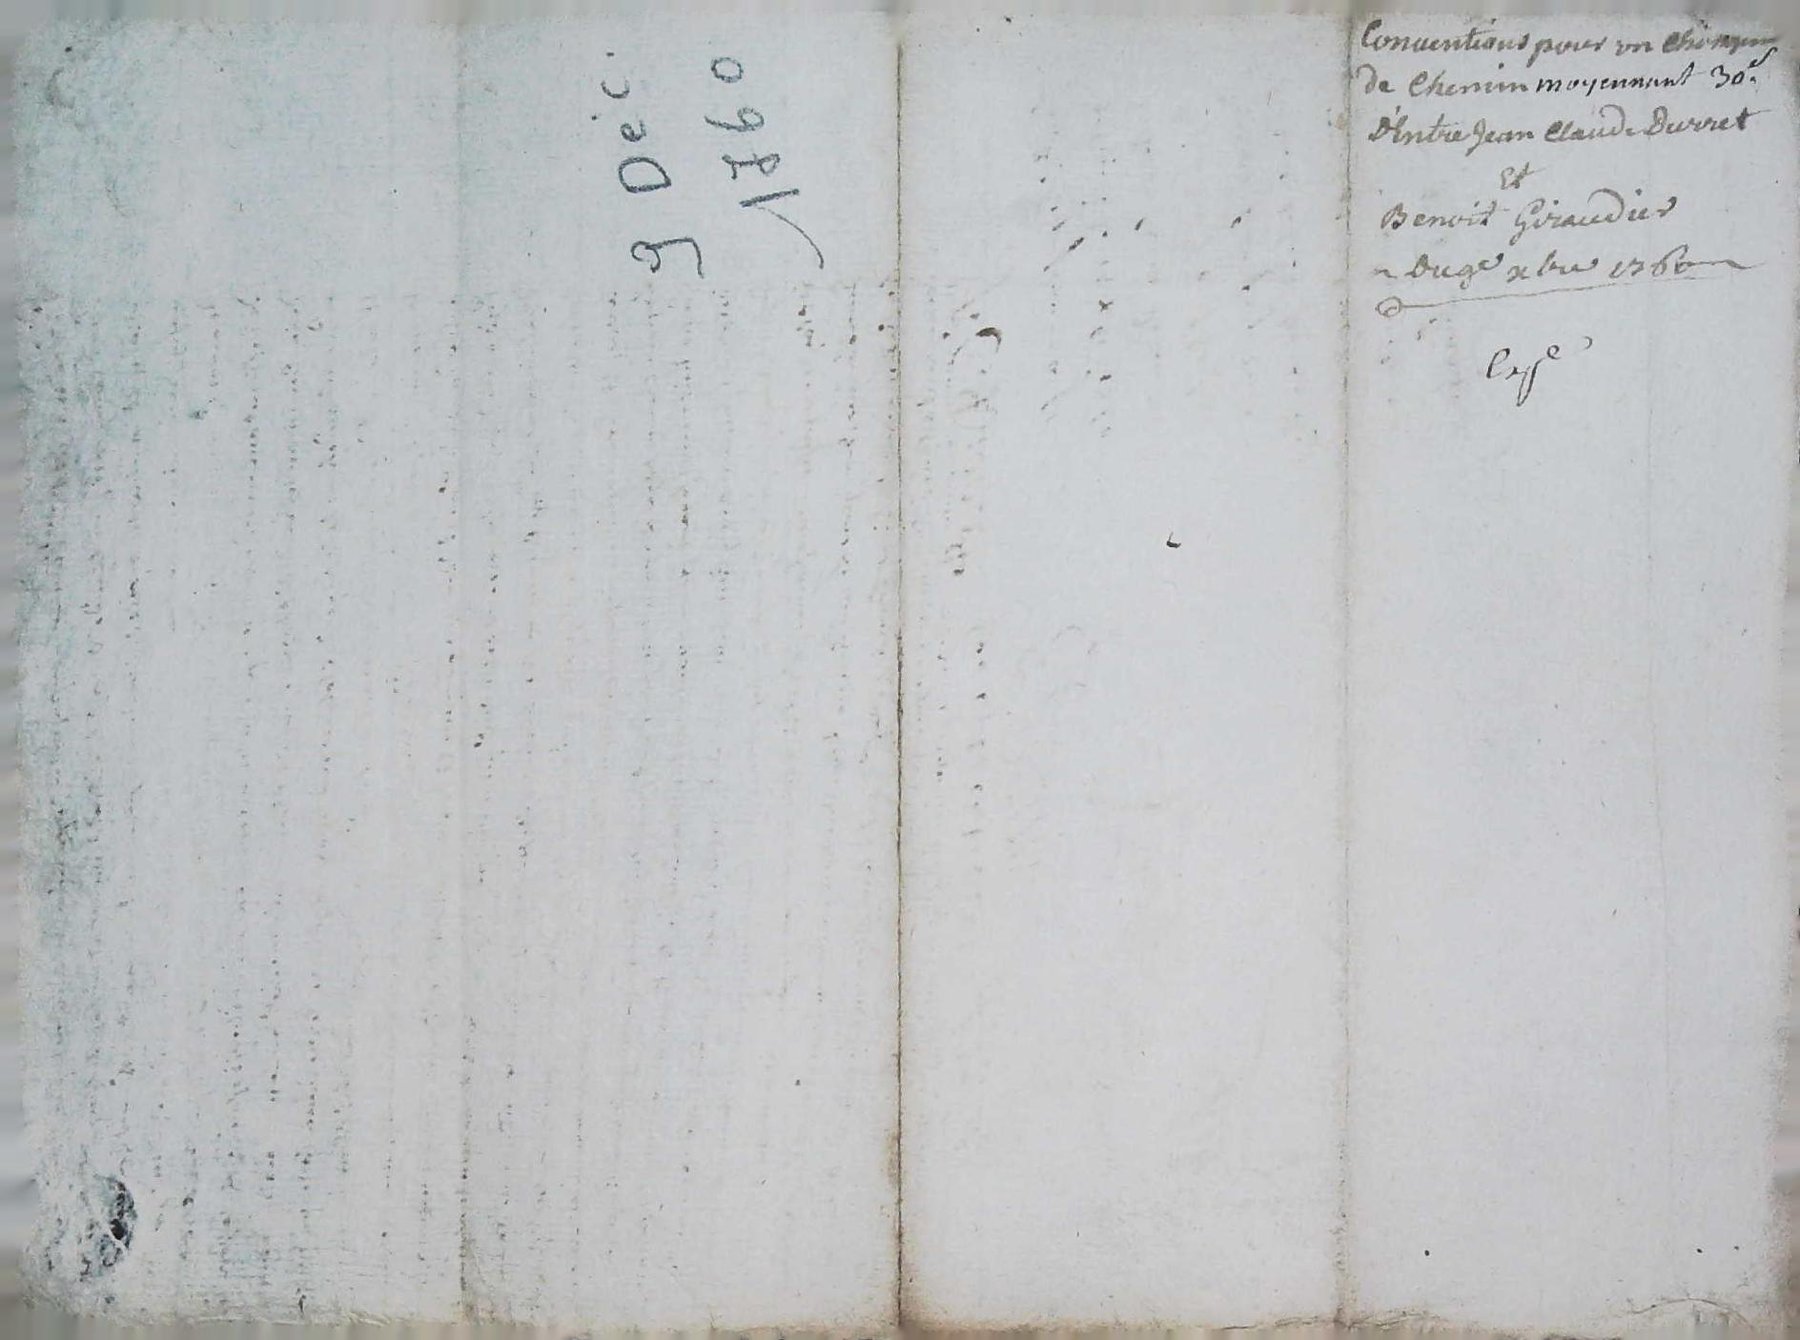 9 Déc.
1760
Conuentions pour un Changem
de Chemin moyennant 30.s
D'Entre Jean Claude Durret
Et
Benoit Giraudier
Du 9e xbre 1760